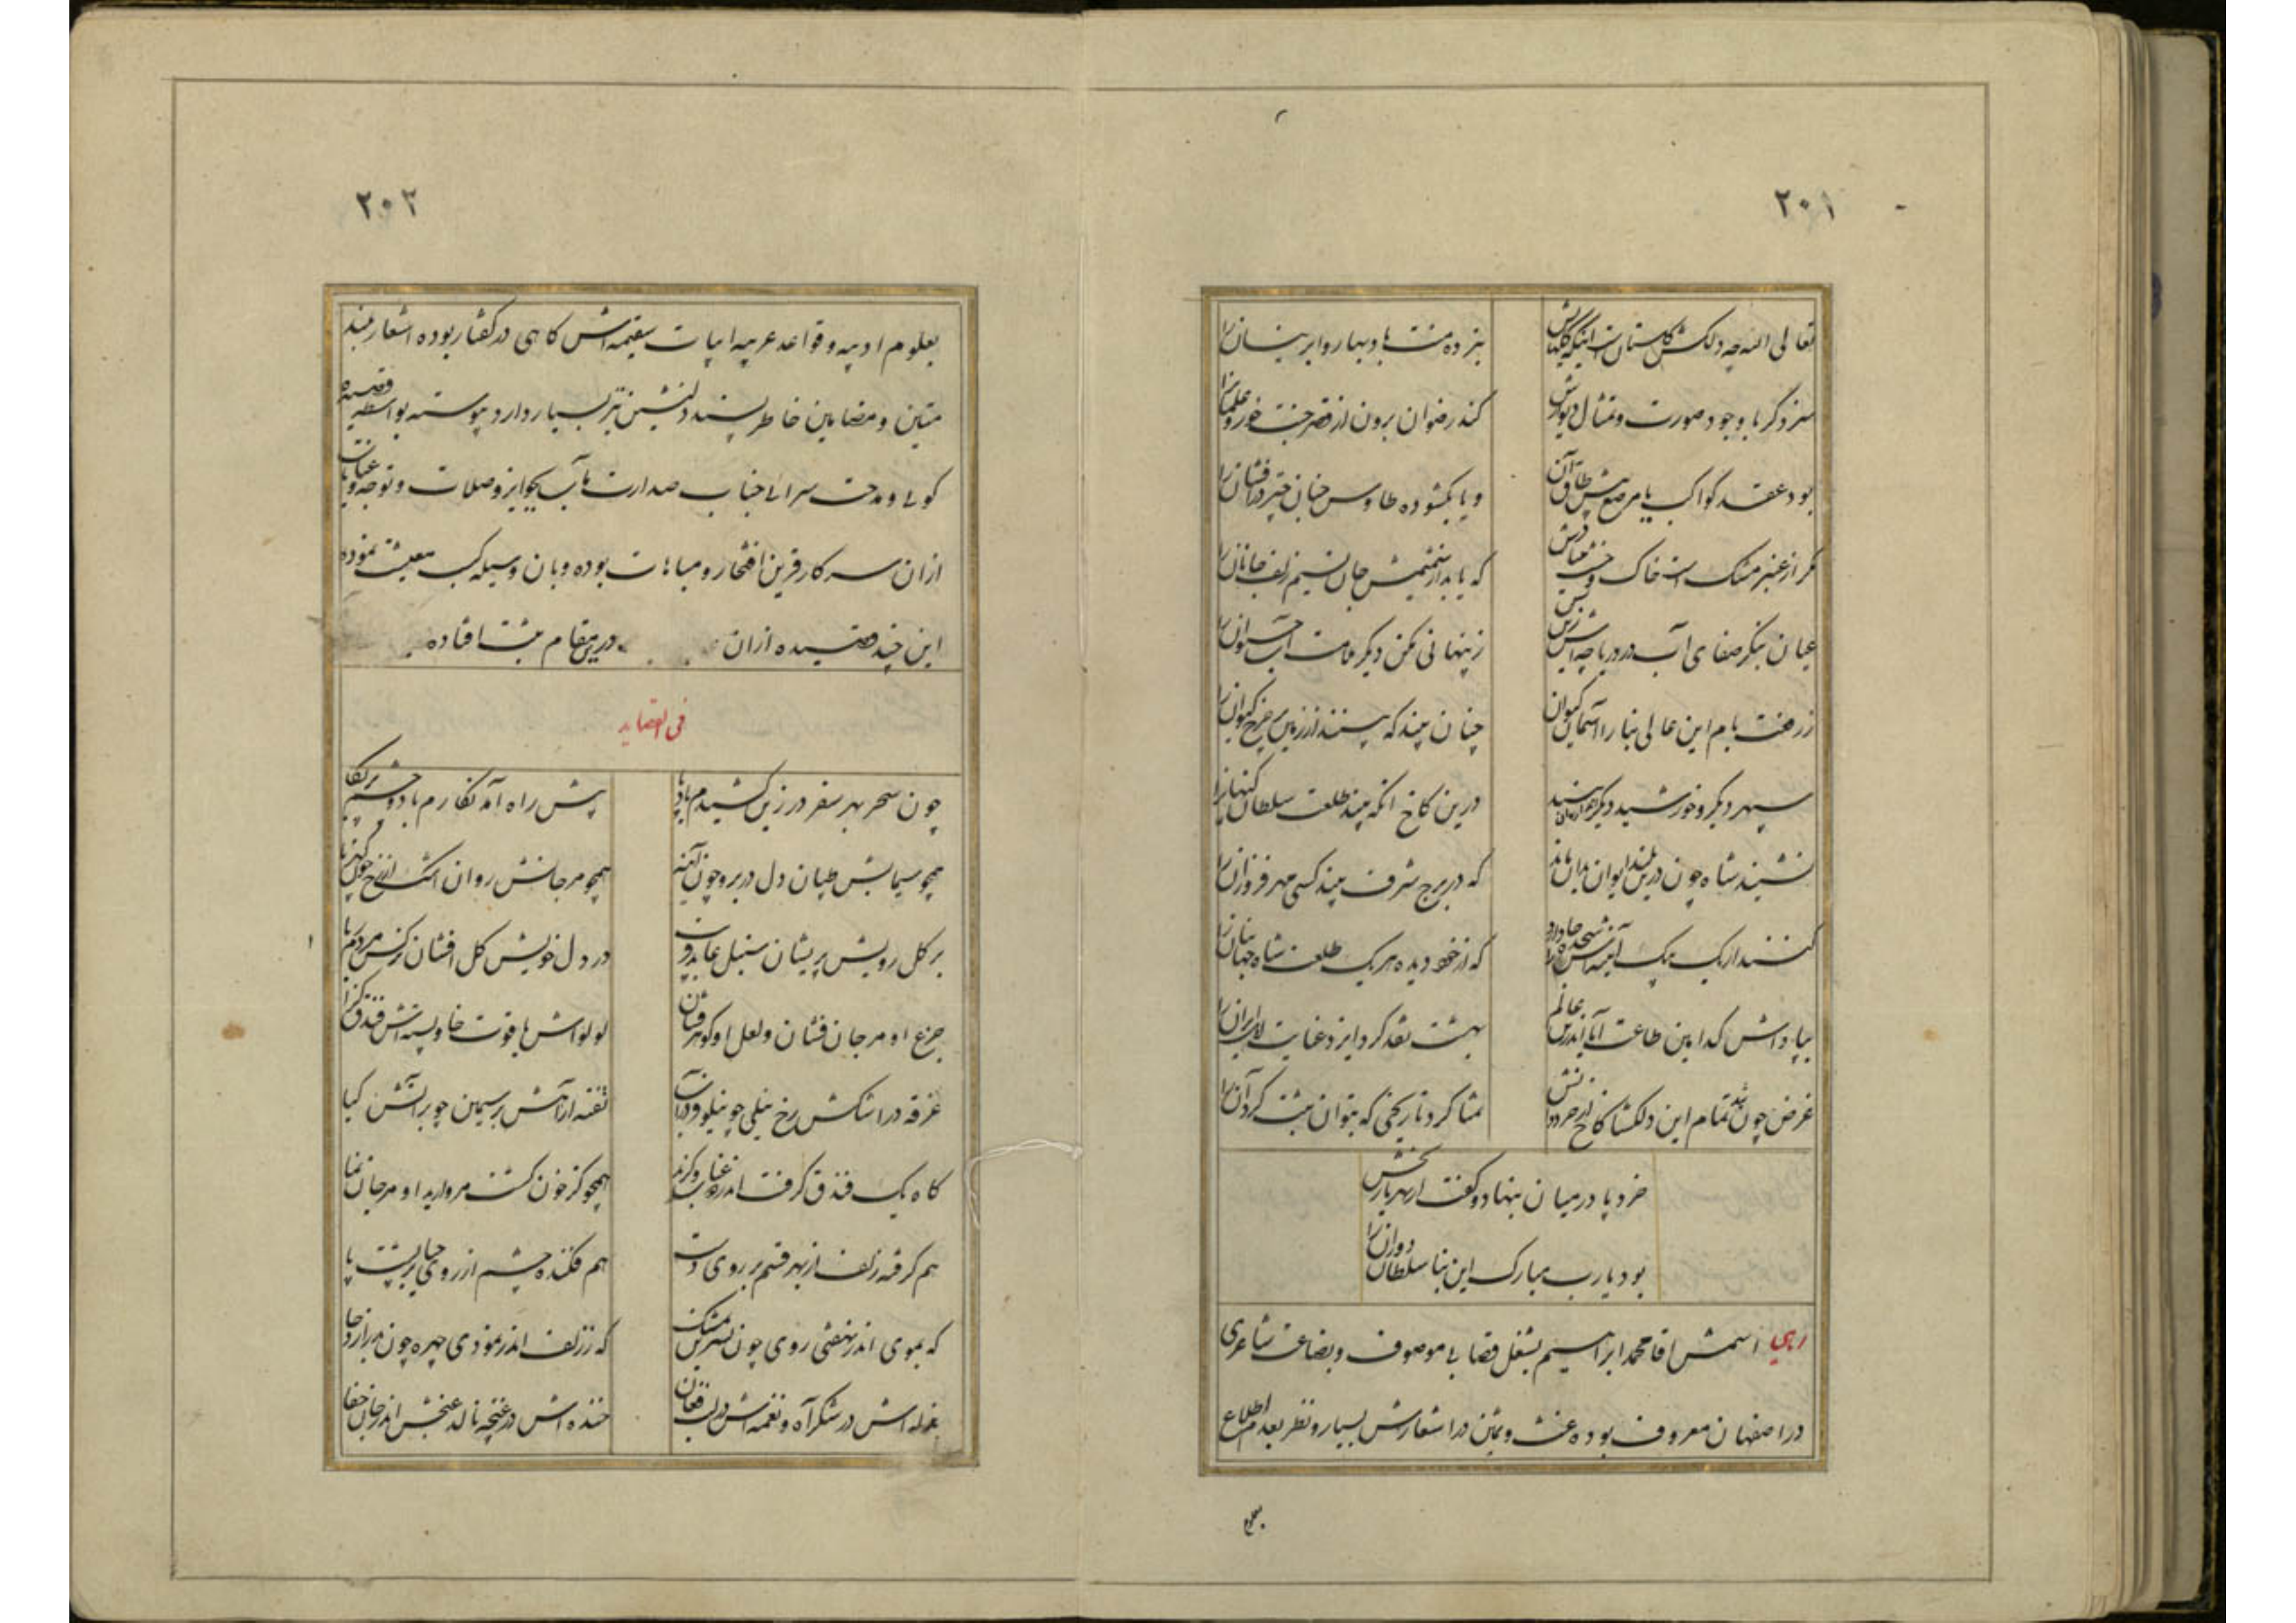 ۲۰۱
تعالی الله چه دلکش گلستان است اینکه گلهایش
بنرده منت باد بهار و ابر نیسان را
سزد گر با وجود صورت و تمثال دیوارش
کند رضوان برون از قصر جنت حور و غلمان را
بود عقد کواکب یا مرصع پیش طاق آن
و یا بگشوده طاوس جنان چتر درافشان را
مگر از عنبر و مشک است خاک
که یابد از شمیمش جان نسیم زلف جانان را
عیان بنگر صفای آب در دریاچه
ز پنهانی مکن دیگر ملامت آب حیوان را
ز رفعت بام این عالی بنا را آسمان کیوان
چنان بیند که بینند از زمین بر چرخ کیوان را
سپهر دیگر و خورشید دیگر
درین کاخ آنکه بیند طلعت سلطان کیهان را
نشیند شاه چون درین بلند ایوان بدان ماند
که در برج شرف بیند کسی مهر فروزان را
که از خود دیده هر یک طلعت شاه جهانبان را
بپاداش کدامین طاعت آیا اندرین عالم
بهشت نقد کرد ایزد عنایت اهل ایران را
غرض چون شد تمام این دلگشا کاخ از خرد
تمنا کرد تاریخی که بتوان ثبت کرد آن را
خرد پا در میان بنهاد و گفت از بهر تاریخش
بود یارب مبارک این بنا سلطان دوران را
رهی اسمش اقا محمد ابراهیم بشغل قصابی موصوف و بضاعت شاعری
در اصفهان معروف بوده غث و ثمین در اشعارش بسیار و نظر بعدم اطلاع
بعلوم
۲۰۲
بعلوم ادبیه و قواعد عربیه ابیات سقیمه اش گاهی در گفتار بوده اشعار بلند
متین و مضامین خاطر پسند دلنشین نیز بسیار دارد پیوسته بواسطه قصیده
گوئی و مدحت سرائی جناب صدارت مآب بجوایز و صلات و توجه و عنایات
ازان سرکار قرین افتخار و مباهات بوده و بان وسیله کسب معیشت نموده
این چند قصیده ازان درین مقام ثبت افتاده
فی القصاید
چون سحر بهر سفر در زین کشیدم بادپا
پیش راه آمد نگارم با دو چشم
همچو سیمابش طپان دل در بر و چون آینه
همچو مرجانش روان اشک از رخ چون کهربا
بر گل رویش پریشان سنبل عابد فریب
در دل خویش گل افشان نرگس مردم ربا
جزع او مرجان فشان و لعل او گوهر فشان
لولواش یاقوت خا و پسته اش فندق گزا
غرقه در اشکش رخ نیلی چو نیلوفر در آب
تفته از آهش بر سیمین چو بر آتش گیا
گاه یک فندق گرفت اندر عناب و گزید
همچو کز خون گشت مروارید او مرجان نما
هم گرفته زلف از بهر قسم بر روی دست
هم فکنده چشم از روی حیا بر پشت پا
که بموی اندر نهفتی روی چون نسرین بمشک
که ز زلف اندر نمودی چهره چون
بذله اش در شکر آه و نغمه اش در لب فغان
خنده اش در غنچه ناله غنجش اندر جان خفا